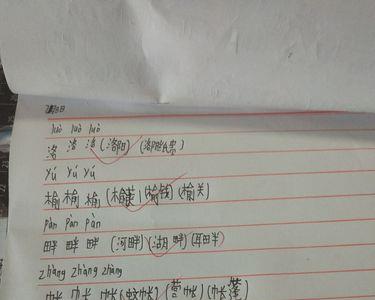 luò luò luò
洛 洛 洛 (洛阳) (洛阳纸贵)
Yú Yú Yú
榆 榆 榆 (榆荚) (榆钱) (榆关)
pàn pàn pàn
畔 畔 畔 (河畔) (湖畔) (耳畔)
zhàng zhàng zhàng
帐 帐 帐 (蚊帐) (营帐) (帐篷)